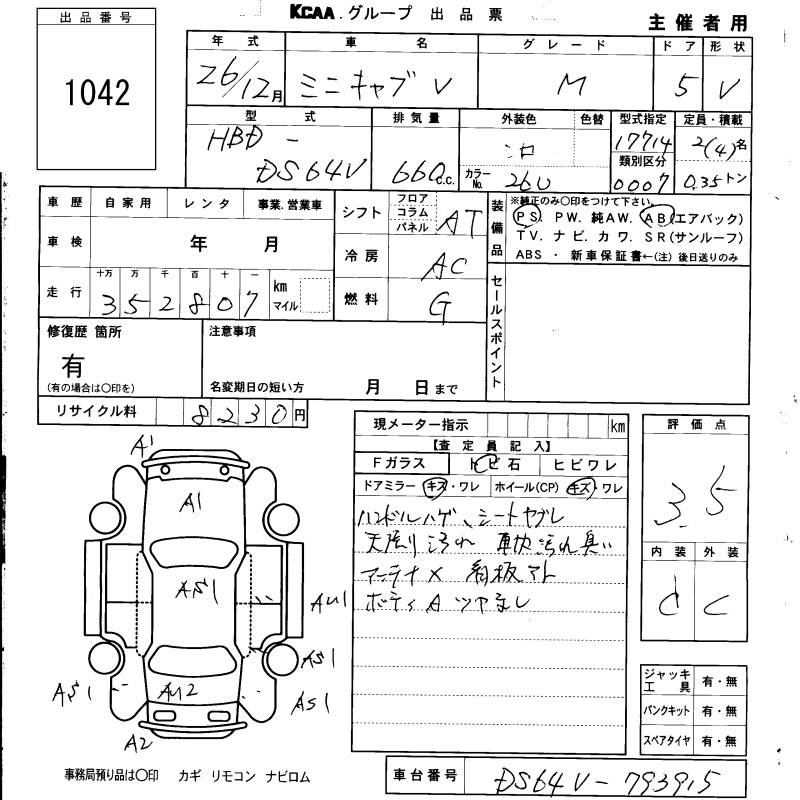 KCAA.グループ 出品票
主催者用
出品番号
1042
年式 車名 グレード ドア 形状
26/12月 ミニキャブV M 5 V
型式 排気量 外装色 色替 型式指定 定員・積載
HBD-DS64V 660c.c. シロ カラーNo. 26U 17714 2(4)名
類別区分 0007 0.35トン
車歴 自家用 レンタ 事業.営業車
車検 年 月
走行 十万 万 千 百 十 一 km マイル
352807
シフト フロア コラム パネル AT
冷房 AC
燃料 G
装備品 ※純正のみ〇印をつけて下さい。
PS. PW. 純AW. AB(エアバック)
TV. ナビ. カワ. SR(サンルーフ)
ABS ・ 新車保証書←(注)後日送りのみ
セールスポイント
修復歴 箇所
有
(有の場合は〇印を)
注意事項
名変期日の短い方 月 日まで
リサイクル料 8230円
現メーター指示 km
【査定員記入】
Fガラス トビ石 ヒビワレ
ドアミラー キズ・ワレ ホイール(CP) キズ・ワレ
ハンドルハゲ、シートヤブレ
天張り汚れ 車内汚れ臭い
アンテナ× 看板アト
ボディAツヤなし
評価点
3.5
内装 外装
d c
ジャッキ工具 有・無
パンクキット 有・無
スペアタイヤ 有・無
A1
A1
AS1
AU1
AS1
AS1
AU2
AS1
A2
事務局預り品は〇印 カギ リモコン ナビロム
車台番号 DS64V-793915